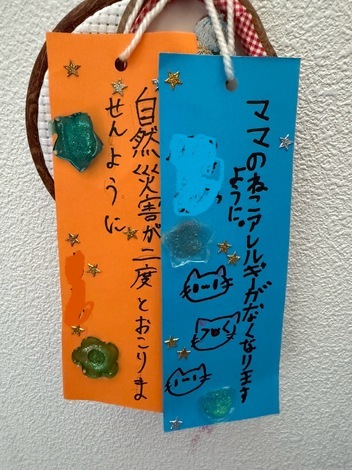 ママのねこアレルギーがなくなります
ように。
自然災害が二度とおこりま
せんように